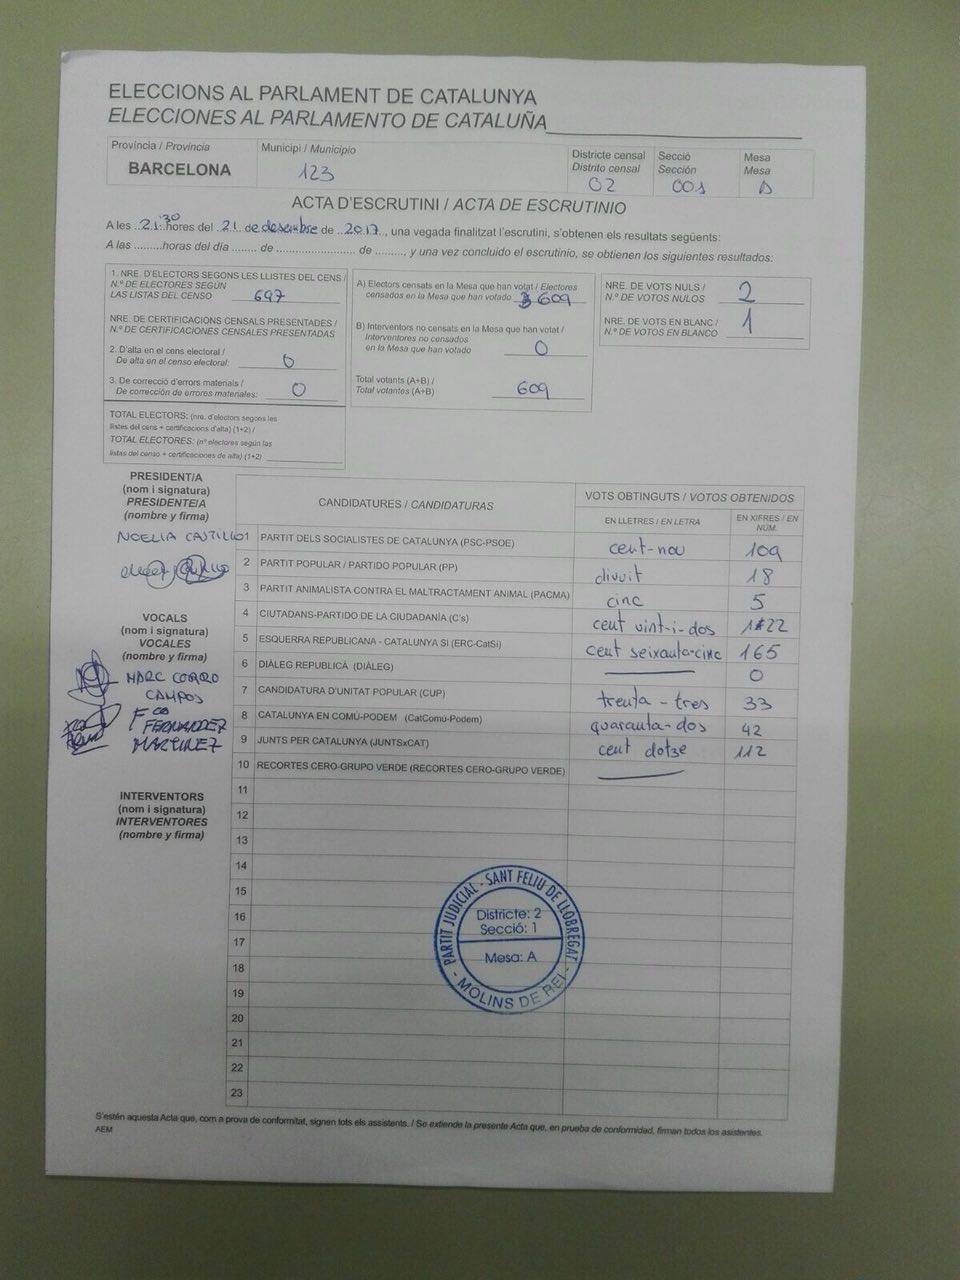 ELECCIONS AL PARLAMENT DE CATALUNYA
ELECCIONES AL PARLAMENTO DE CATALUÑA
Província / Provincia
BARCELONA
Municipi / Municipio
123
Districte censal
Distrito censal
02
Secció
Sección
001
Mesa
Mesa
A
ACTA D'ESCRUTINI / ACTA DE ESCRUTINIO
A les ..21:30 hores del .21.. de desembre de ..2017.., una vegada finalitzat l'escrutini, s'obtenen els resultats següents:
A las .........horas del día ........ de ......................... de ........, y una vez concluido el escrutinio, se obtienen los siguientes resultados:
1. NRE. D'ELECTORS SEGONS LES LLISTES DEL CENS /
N.º DE ELECTORES SEGÚN
LAS LISTAS DEL CENSO 697
NRE. DE CERTIFICACIONS CENSALS PRESENTADES /
N.º DE CERTIFICACIONES CENSALES PRESENTADAS
2. D'alta en el cens electoral /
De alta en el censo electoral: 0
3. De correcció d'errors materials /
De corrección de errores materiales: 0
TOTAL ELECTORS: (nre. d'electors segons les
llistes del cens + certificacions d'alta) (1+2) /
TOTAL ELECTORES: (nº electores según las
listas del censo + certificaciones de alta) (1+2)
A) Electors censats en la Mesa que han votat / Electores
censados en la Mesa que han votado 609
B) Interventors no censats en la Mesa que han votat /
Interventores no censados
en la Mesa que han votado 0
Total votants (A+B) /
Total votantes (A+B) 609
NRE. DE VOTS NULS /
N.º DE VOTOS NULOS 2
NRE. DE VOTS EN BLANC /
N.º DE VOTOS EN BLANCO 1
PRESIDENT/A
(nom i signatura)
PRESIDENTE/A
(nombre y firma)
NOELIA CASTILLO
VOCALS
(nom i signatura)
VOCALES
(nombre y firma)
MARC CORRO
CAMPOS
Fco
FERNANDEZ
MARTINEZ
INTERVENTORS
(nom i signatura)
INTERVENTORES
(nombre y firma)
CANDIDATURES / CANDIDATURAS
VOTS OBTINGUTS / VOTOS OBTENIDOS
EN LLETRES / EN LETRA
EN XIFRES / EN NÚM.
1 PARTIT DELS SOCIALISTES DE CATALUNYA (PSC-PSOE) cent-nou 109
2 PARTIT POPULAR / PARTIDO POPULAR (PP) divuit 18
3 PARTIT ANIMALISTA CONTRA EL MALTRACTAMENT ANIMAL (PACMA) cinc 5
4 CIUTADANS-PARTIDO DE LA CIUDADANÍA (C's) cent vint-i-dos 122
5 ESQUERRA REPUBLICANA - CATALUNYA SI (ERC-CatSi) cent seixanta-cinc 165
6 DIÀLEG REPUBLICÀ (DIÀLEG) 0
7 CANDIDATURA D'UNITAT POPULAR (CUP) trenta-tres 33
8 CATALUNYA EN COMÚ-PODEM (CatComú-Podem) quaranta-dos 42
9 JUNTS PER CATALUNYA (JUNTSxCAT) cent dotze 112
10 RECORTES CERO-GRUPO VERDE (RECORTES CERO-GRUPO VERDE)
11
12
13
14
15
16
17
18
19
20
21
22
23
PARTIT JUDICIAL - SANT FELIU DE LLOBREGAT
Districte: 2
Secció: 1
Mesa: A
- MOLINS DE REI -
S'estén aquesta Acta que, com a prova de conformitat, signen tots els assistents. / Se extiende la presente Acta que, en prueba de conformidad, firman todos los asistentes.
AEM